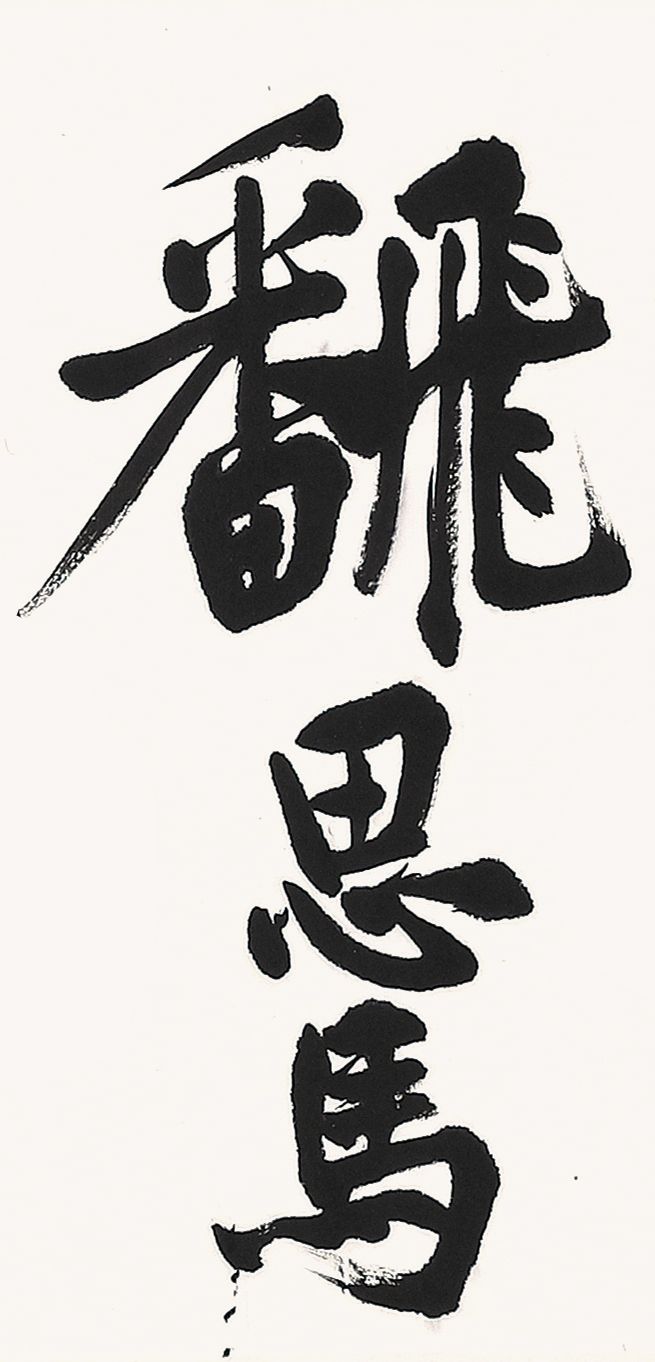 飜思馬